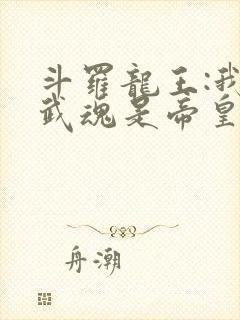 斗羅龍王:我
武魂是帝皇
舟潮